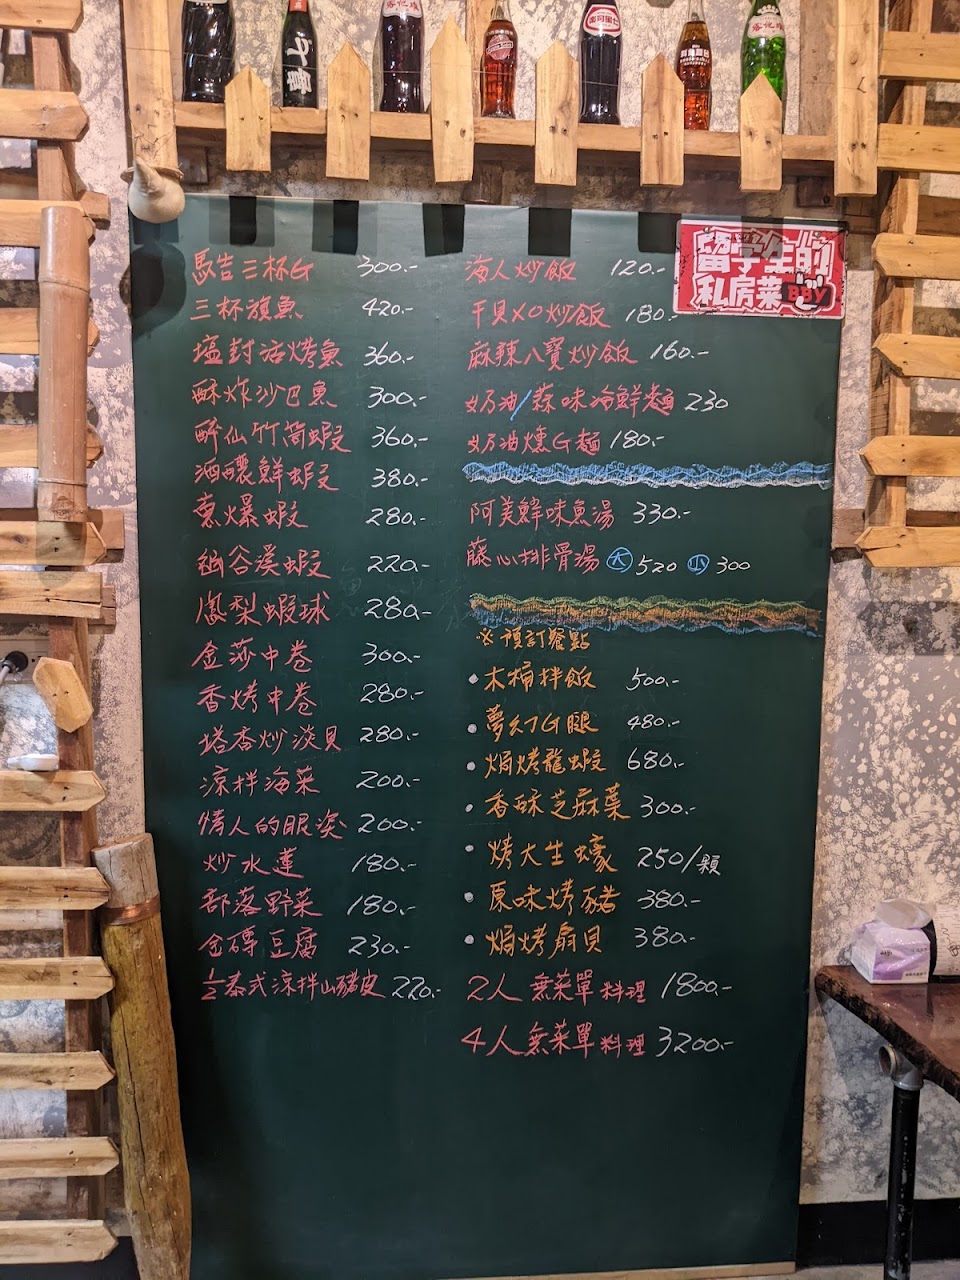 馬告三杯G 300.-
三杯旗魚 420.-
塩封活烤魚 360.-
酥炸沙巴魚 300.-
醉仙竹筒蝦 360.-
酒釀鮮蝦 380.-
蔥爆蝦 280.-
幽谷溪蝦 220.-
鳳梨蝦球 280.-
金莎中卷 300.-
香烤中卷 280.-
塔香炒淡貝 280.-
涼拌海菜 200.-
情人的眼淚 200.-
炒水蓮 180.-
部落野菜 180.-
金磚豆腐 230.-
泰式涼拌山豬皮 220.-
海人炒飯 120.-
干貝XO炒飯 180.-
麻辣八寶炒飯 160.-
奶油/蒜味冷鮮麵 230
奶油燻G麵 180.-
阿美鮮味魚湯 330.-
藤心排骨湯 大 520 小 300
※預訂餐點
•木桶拌飯 500.-
•夢幻G腿 480.-
•焗烤龍蝦 680.-
•香酥芝麻葉 300.-
•烤大生蠔 250/顆
•原味烤豬 380.-
•焗烤扇貝 380.-
2人無菜單料理 1800.-
4人無菜單料理 3200.-
留學生的
私房菜 BBY